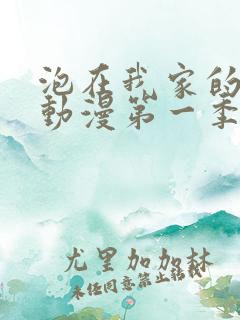 泡在我家的
動漫第一季
尤里加加林
未经同意禁止转载